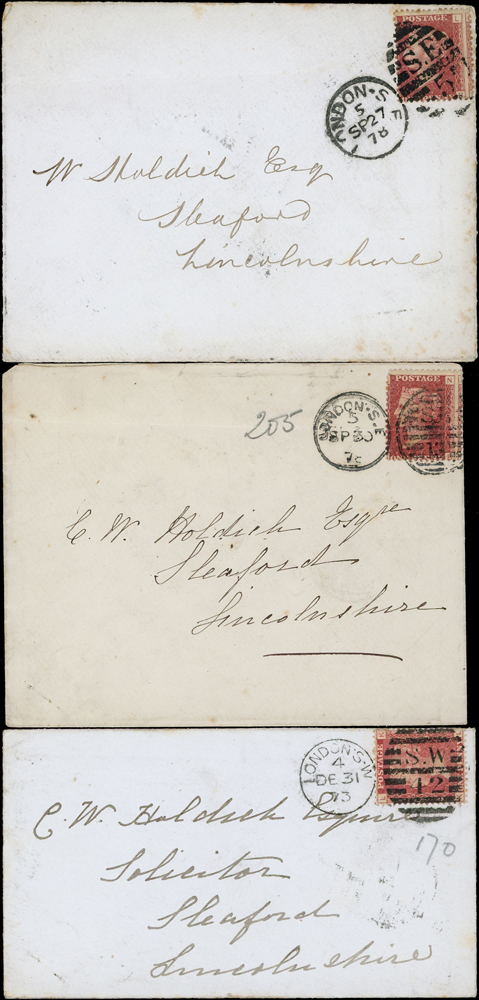 POSTAGE
L
S.E
5
LONDON·S.E
5
SP27
78
W Holdich Esq
Sleaford
Lincolnshire
POSTAGE
N
LONDON·S.E
5
SP30
78
205
C. W. Holdich Esqre
Sleaford
Lincolnshire
LONDON·S.W
4
DE31
73
POSTAGE
S.W
12
C. W. Holdich Esquire
170
Solicitor
Sleaford
Lincolnshire